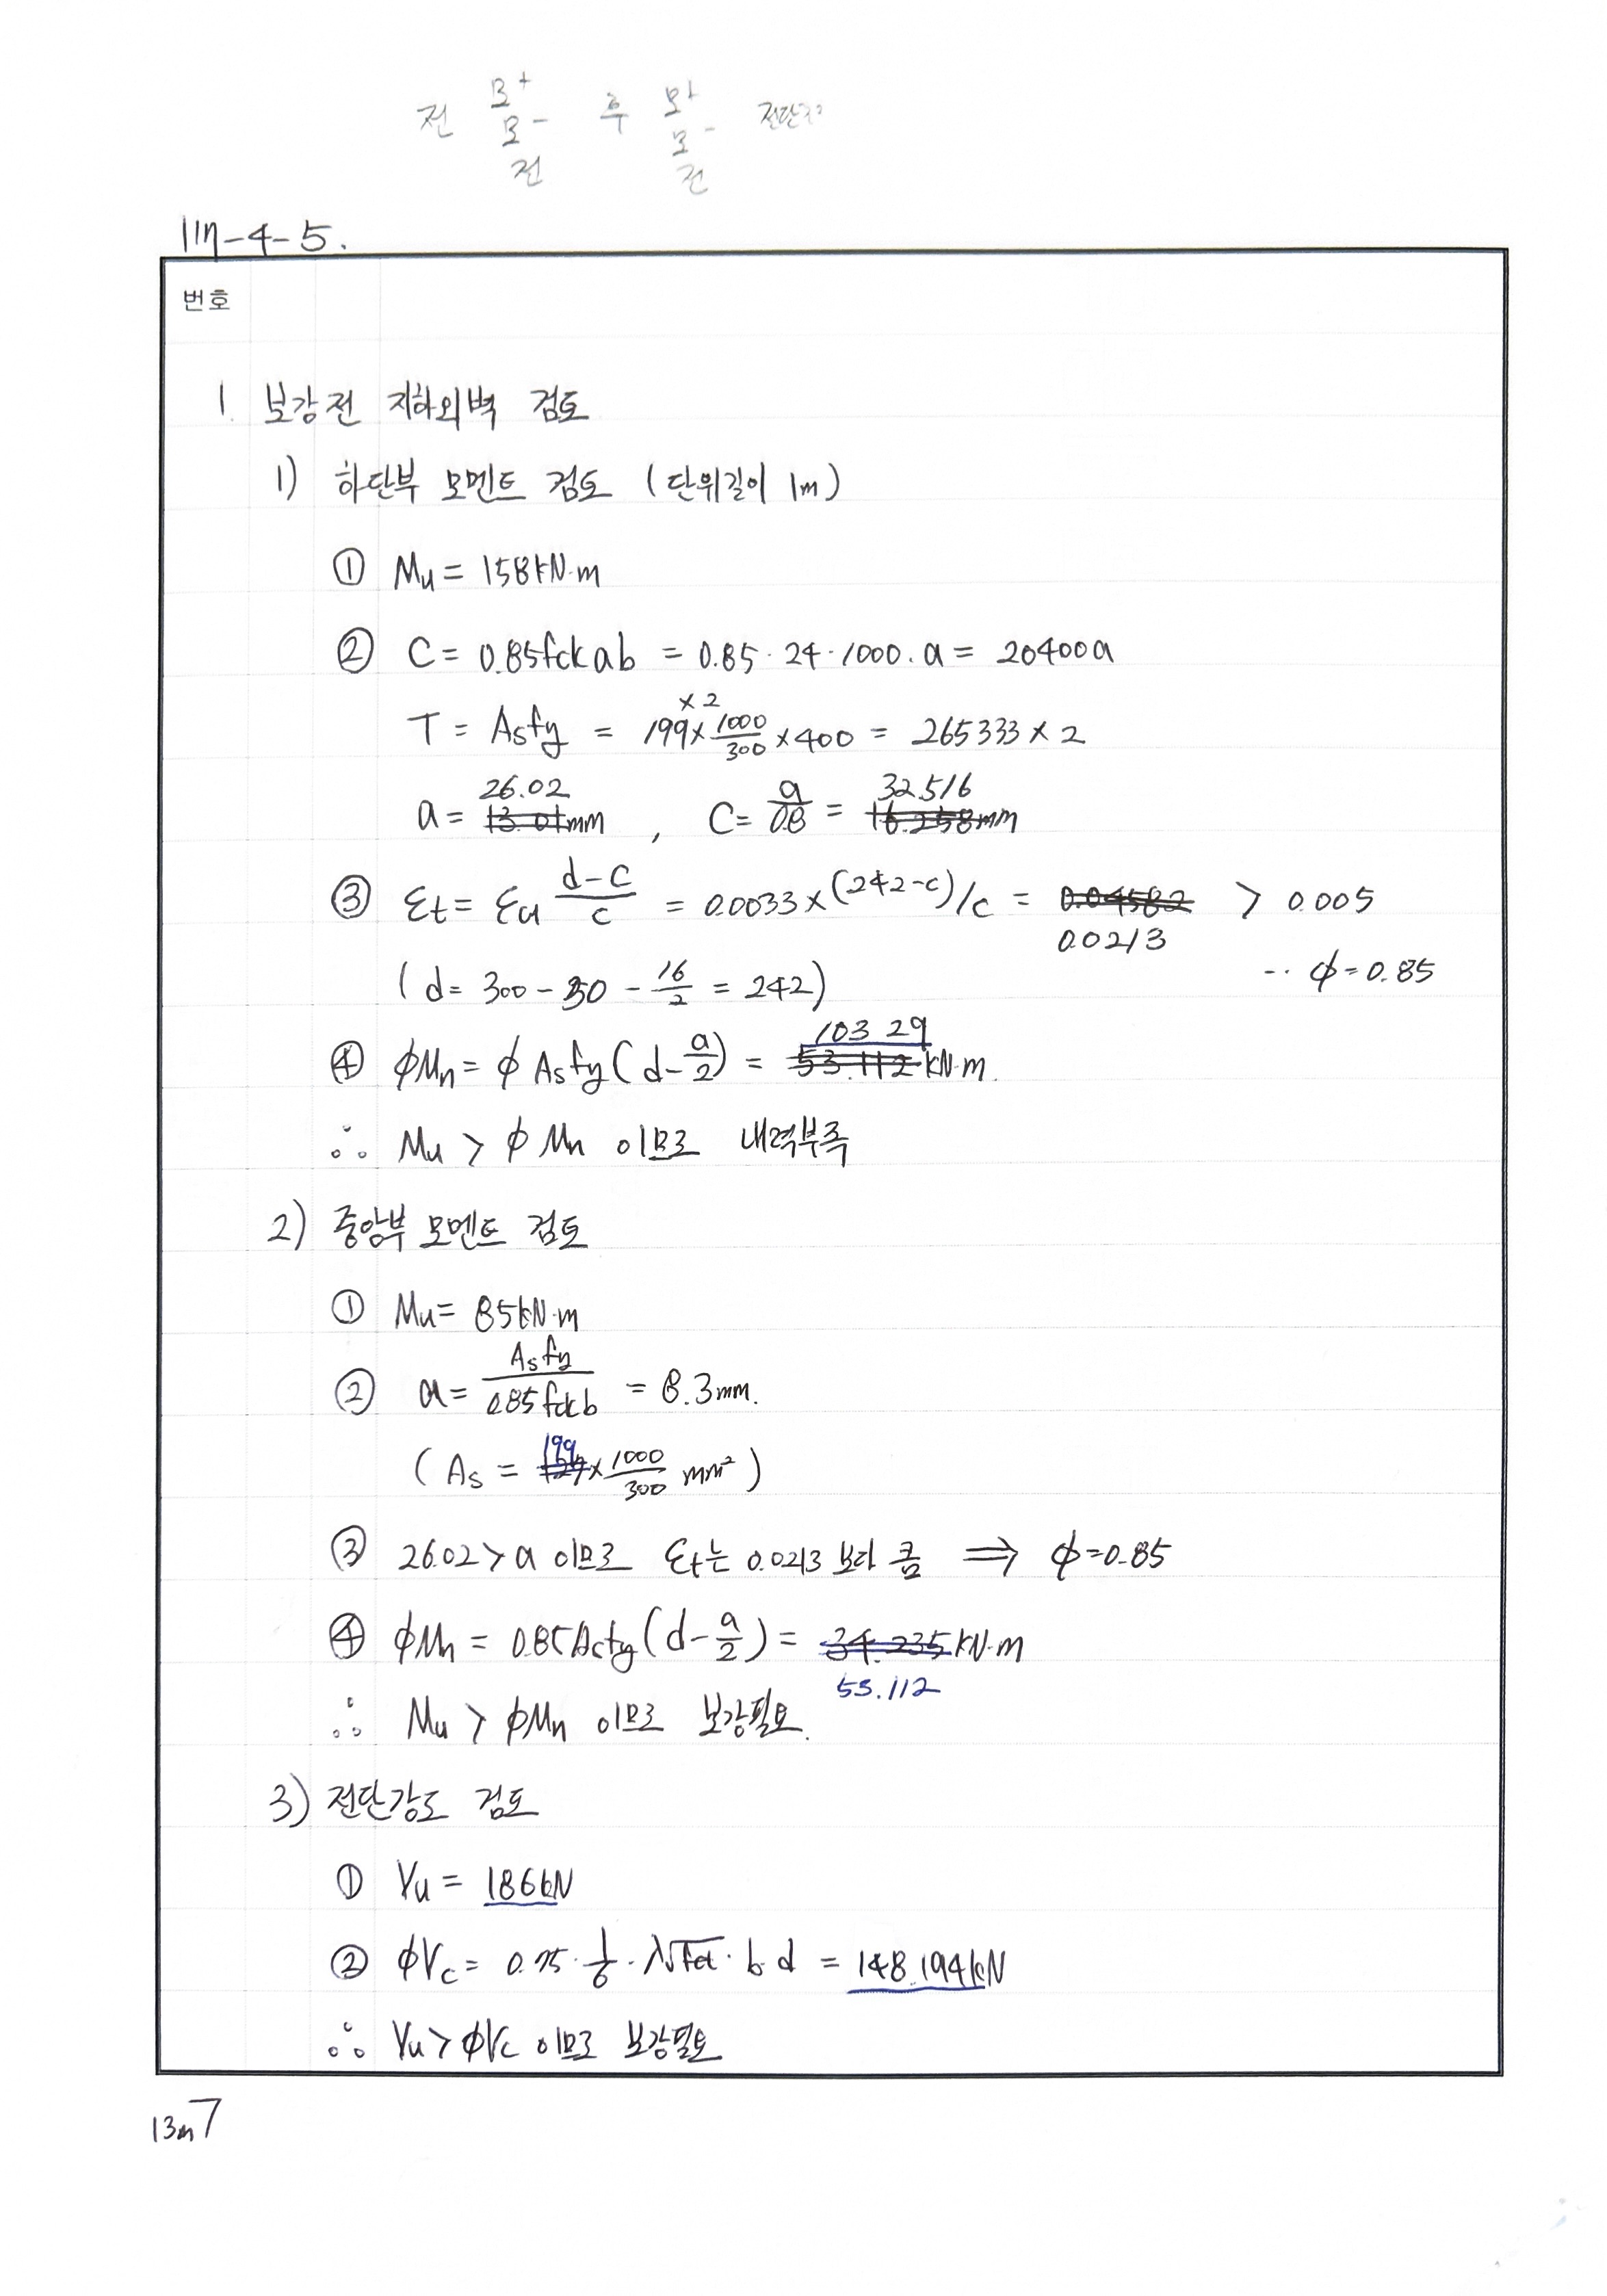 전 모+ 후 모+ 전단
모- 모-
전 전
117-4-5.
번호
1. 보강전 지하외벽 검토
1) 하단부 모멘트 검토 (단위길이 1m)
① Mu = 158kN·m
② C = 0.85fck a b = 0.85·24·1000·a = 20400a
T = Asfy = 199×2×1000/300×400 = 265333×2
a = 26.02 13.01mm , C = a/0.8 = 32.516 16.258mm
③ εt = εu (d-c)/c = 0.0033×(242-c)/c = 0.04582 0.0213 > 0.005
∴ φ=0.85
(d = 300 - 50 - 16/2 = 242)
④ φMn = φAsfy(d-a/2) = 103.29 53.112 kN·m.
∴ Mu > φMn 이므로 내력부족
2) 중앙부 모멘트 검토
① Mu = 85kN·m
② a = Asfy/0.85fckb = 8.3mm.
(As = 199 127×1000/300 mm²)
③ 26.02 > a 이므로 εt는 0.0213 보다 큼 ⇒ φ=0.85
④ φMn = 0.85Asfy(d-a/2) = 34.235 kN·m
53.112
∴ Mu > φMn 이므로 보강필요.
3) 전단강도 검토
① Vu = 186kN
② φVc = 0.75·1/6·λ√fck·b·d = 148.194kN
∴ Vu > φVc 이므로 보강필요
13m7